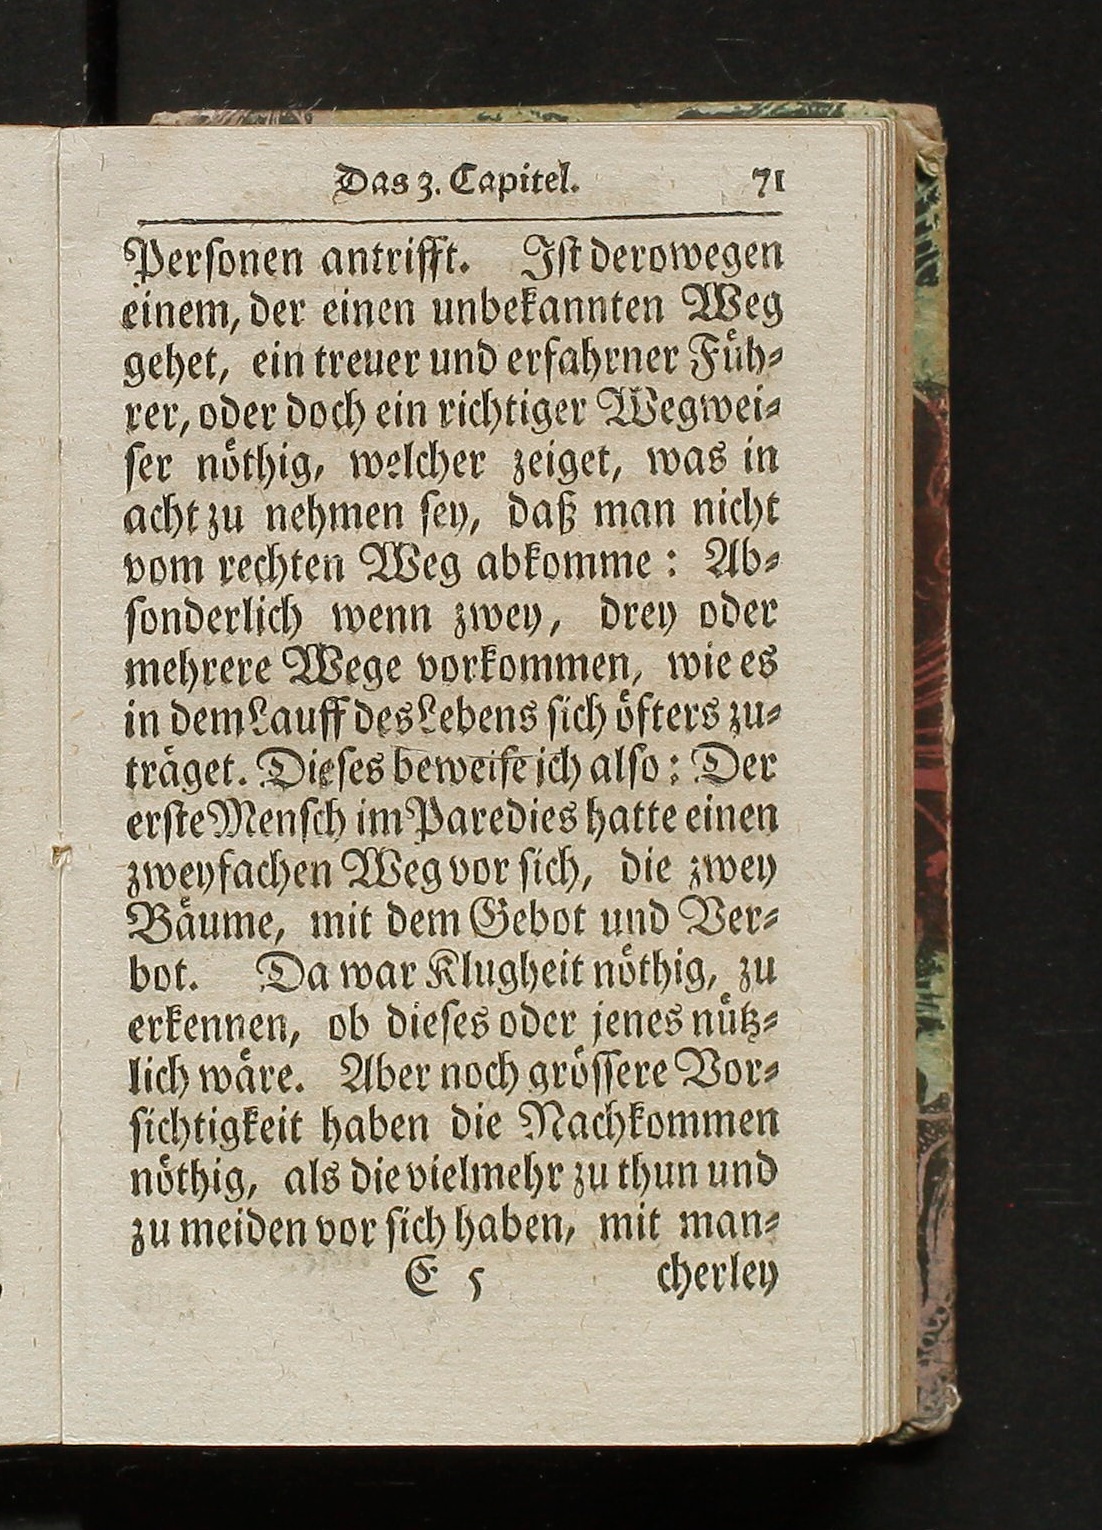 Das 3. Capitel. 71
Perſonen antrifft. Iſt derowegen
einem, der einen unbekannten Weg
gehet, ein treuer und erfahrner Fuͤh⸗
rer, oder doch ein richtiger Wegwei⸗
ſer noͤthig, welcher zeiget, was in
acht zu nehmen ſey, daß man nicht
vom rechten Weg abkomme: Ab⸗
ſonderlich wenn zwey, drey oder
mehrere Wege vorkommen, wie es
in dem Lauff des Lebens ſich oͤfters zu⸗
traͤget. Dieſes beweiſe ich alſo: Der
erſte Menſch im Paredies hatte einen
zweyfachen Weg vor ſich, die zwey
Baͤume, mit dem Gebot und Ver⸗
bot. Da war Klugheit noͤthig, zu
erkennen, ob dieſes oder jenes nuͤtz⸗
lich waͤre. Aber noch groͤſſere Vor⸗
ſichtigkeit haben die Nachkommen
noͤthig, als die vielmehr zu thun und
zu meiden vor ſich haben, mit man⸗
E 5 cherley